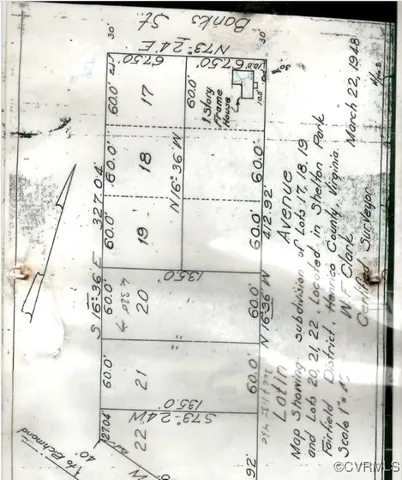 Banks St.
30'
N73°24'E
30'
67.50'
67.50'
60.0'
17
60.0'
1 Story
Frame
House
60.0'
18
N16°36'W
60.0'
60.0'
19
60.0'
S 16°36'E 327.04'
N 16°36'W 412.92'
135.0'
60.0'
20
60.0'
"
60.0'
21
60.0'
"
135.0'
S73°24'W
27.04
22
92'
40'
To Richmond
Latin Avenue
Map Showing subdivision of Lots 17, 18, 19
and Lots 20, 21, 22. Located in Shelton Park
Fairfield District, Henrico County, Virginia.
Scale 1"=
W.F. Clark March 22, 1948
Certified Surveyor
©CVRMLS